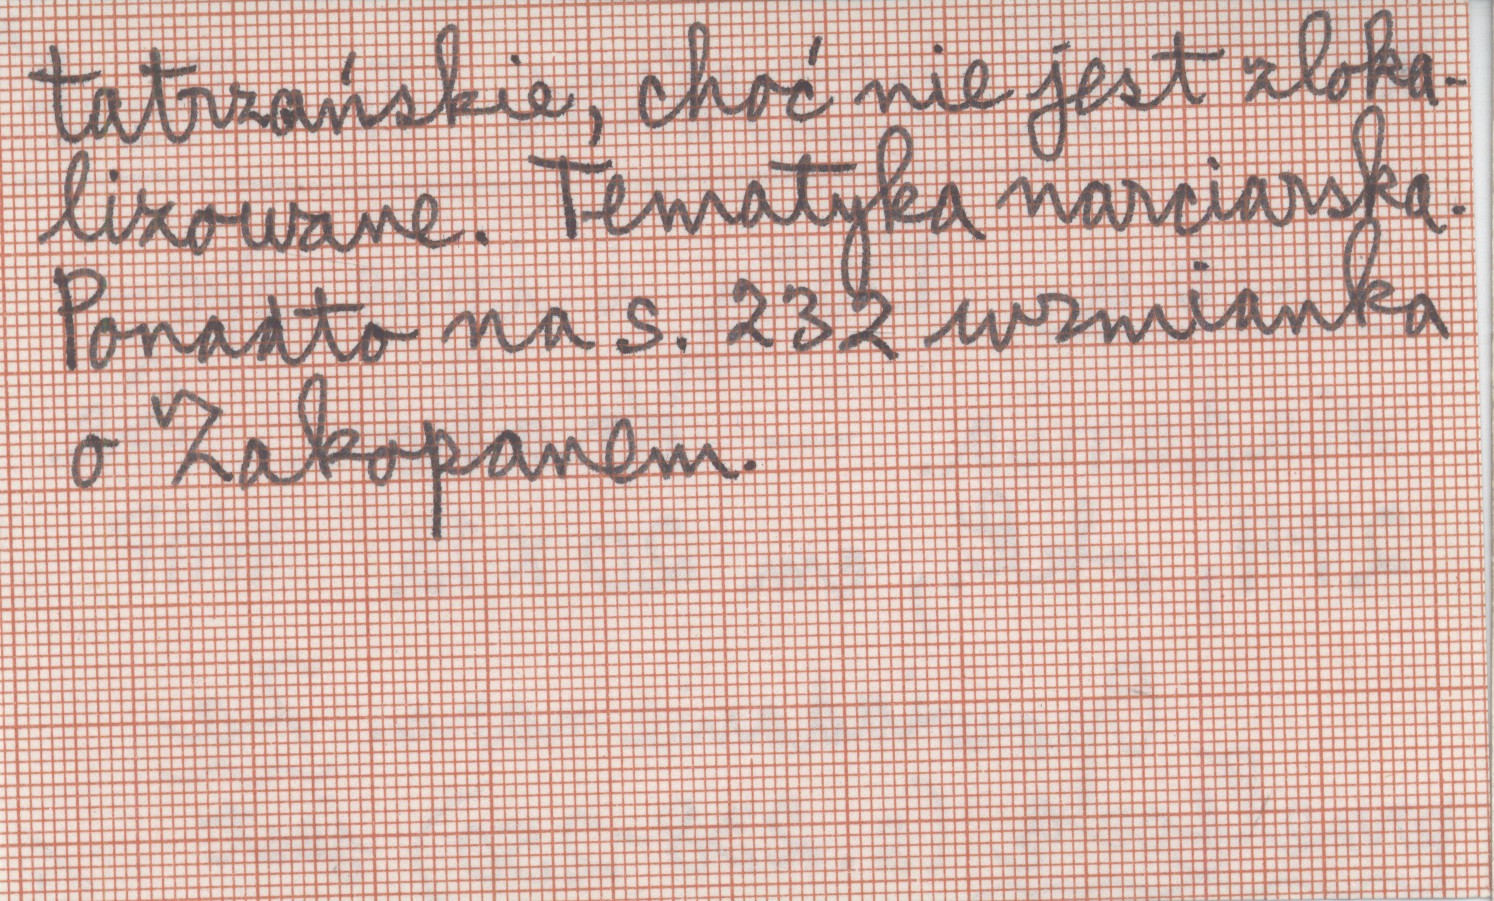 tatrzańskie, choć nie jest zloka-
lizowane. Tematyka narciarska.
Ponadto na s. 232 wzmianka
o Zakopanem.